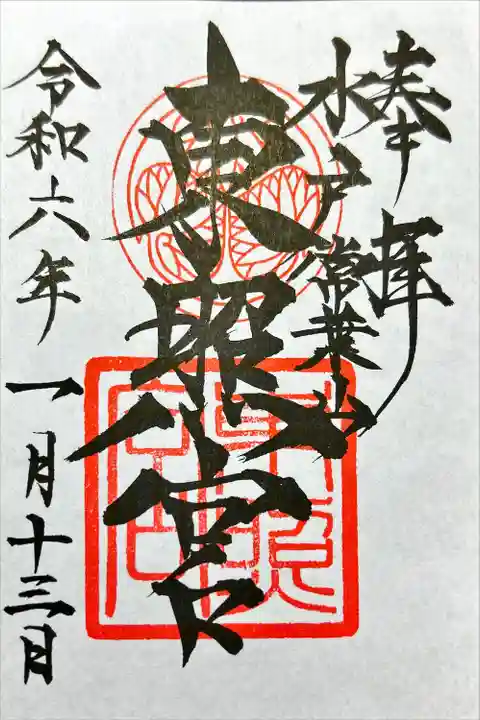 奉拝
水戸常葉山
東照宮
令和六年一月十三日